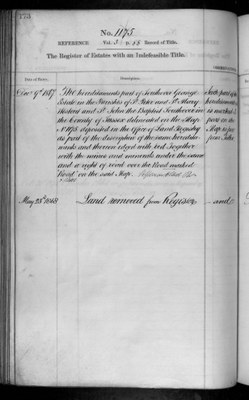 No. 1175.
REFERENCE Vol. 3. p. 98 Record of Title.
The Register of Estates with an Indefeasible Title.
Date of Entry. Description.
Decr 9th 1867 The hereditaments part of Southover Grange
Estate in the Parishes of St Peter and St Mary
Westout and St John the Baptist Southover in
the County of Sussex delineated on the Map
No 1175 deposited in the Office of Land Registry
as part of the description of the same heredita-
ments and thereon edged with red Together
with the mines and minerals under the same
and a right of road over the Road marked
"Road" on the said Map.
May 28th 1868 Land removed from Register
and